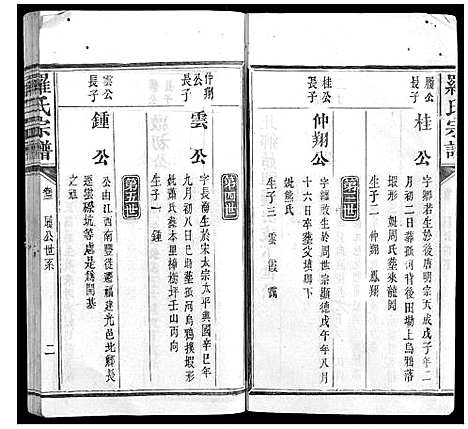 羅氏宗譜
履公長子
桂公
字鄉若生於後唐明宗天成戊子年二
月初二日葬孤河背後田塲上烏鴉落
蝦形 娶周氏葬來龍岡
生子二 仲翔 鳳翔
第三世
桂公長子
仲翔公
字 生於周世宗顯德戊午年八月
十六日卒葬父墳
娶熊氏
生子三 雲 霞 靄
第四世
仲翔公長子
雲公
字長 生於宋太宗太平興國辛巳年
九月初八日巳時葬孤河烏鴉撲蝦形
娶蕭氏葬本里樟樹坪壬山丙向
生子一 鍾
第五世
雲公長子
鍾公
公由江西南豐徙遷福建光邑北鄉長
逕雲磜坑等處是爲開基
之祖
羅氏宗譜
卷三 履公世系
二